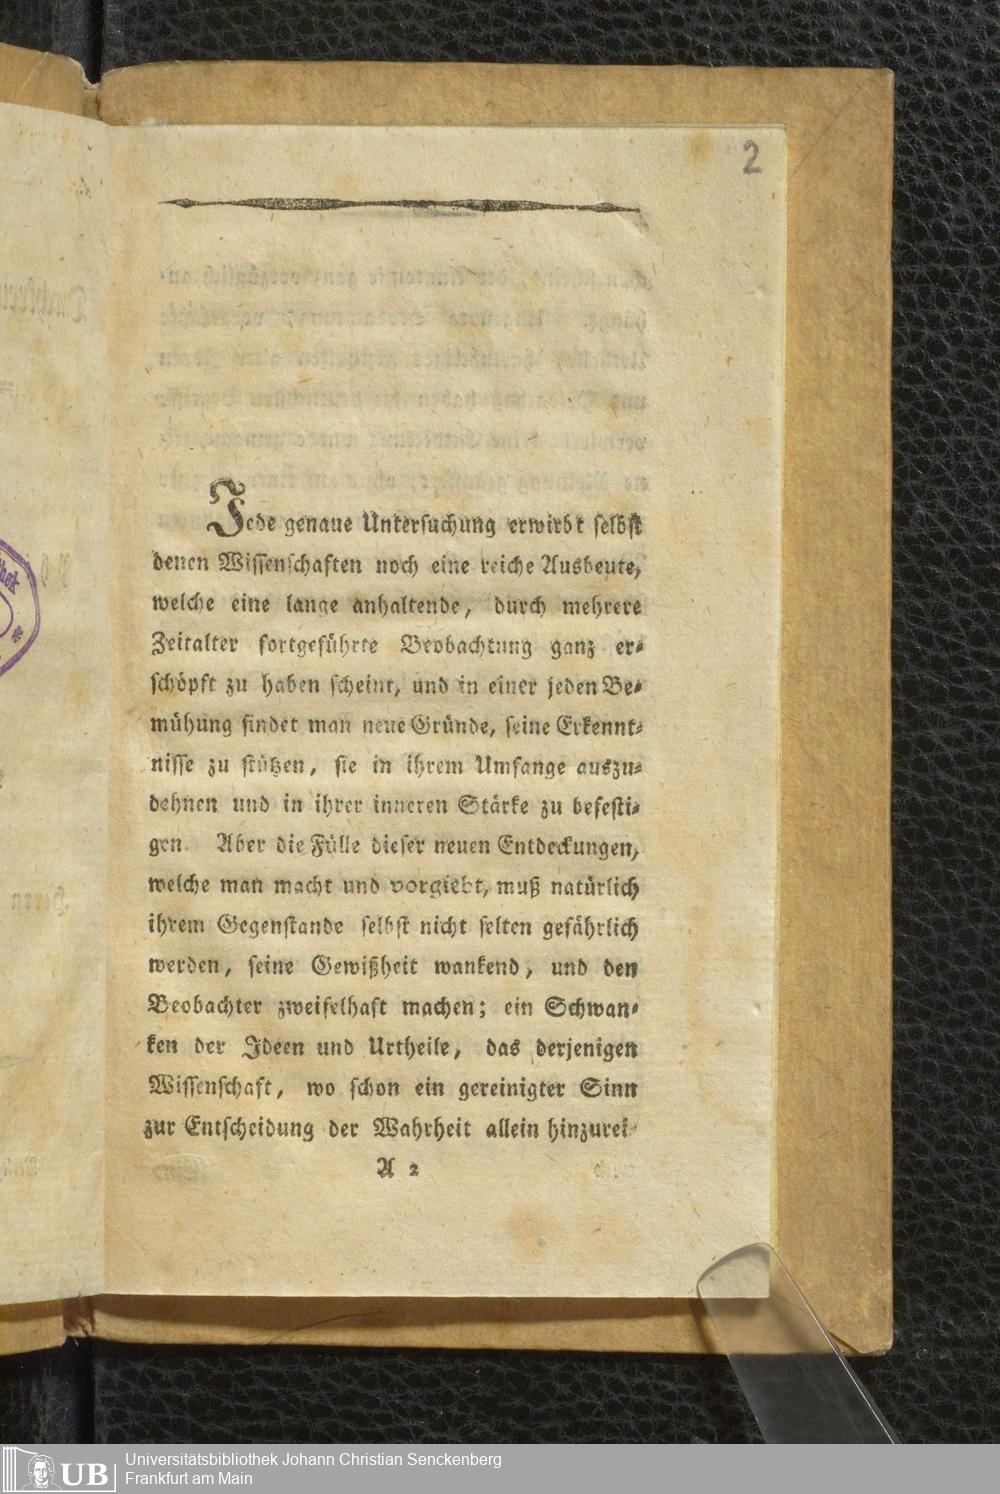 2
Jede genaue Untersuchung erwirbt selbst
denen Wissenschaften noch eine reiche Ausbeute,
welche eine lange anhaltende, durch mehrere
Zeitalter fortgeführte Beobachtung ganz er-
schöpft zu haben scheint, und in einer jeden Be-
mühung findet man neue Gründe, seine Erkennt-
nisse zu stützen, sie in ihrem Umfange auszu-
dehnen und in ihrer inneren Stärke zu befesti-
gen. Aber die Fülle dieser neuen Entdeckungen,
welche man macht und vorgiebt, muß natürlich
ihrem Gegenstande selbst nicht selten gefährlich
werden, seine Gewißheit wankend, und den
Beobachter zweifelhaft machen; ein Schwan-
ken der Ideen und Urtheile, das derjenigen
Wissenschaft, wo schon ein gereinigter Sinn
zur Entscheidung der Wahrheit allein hinzurei-
A 2
UB
Universitätsbibliothek Johann Christian Senckenberg
Frankfurt am Main